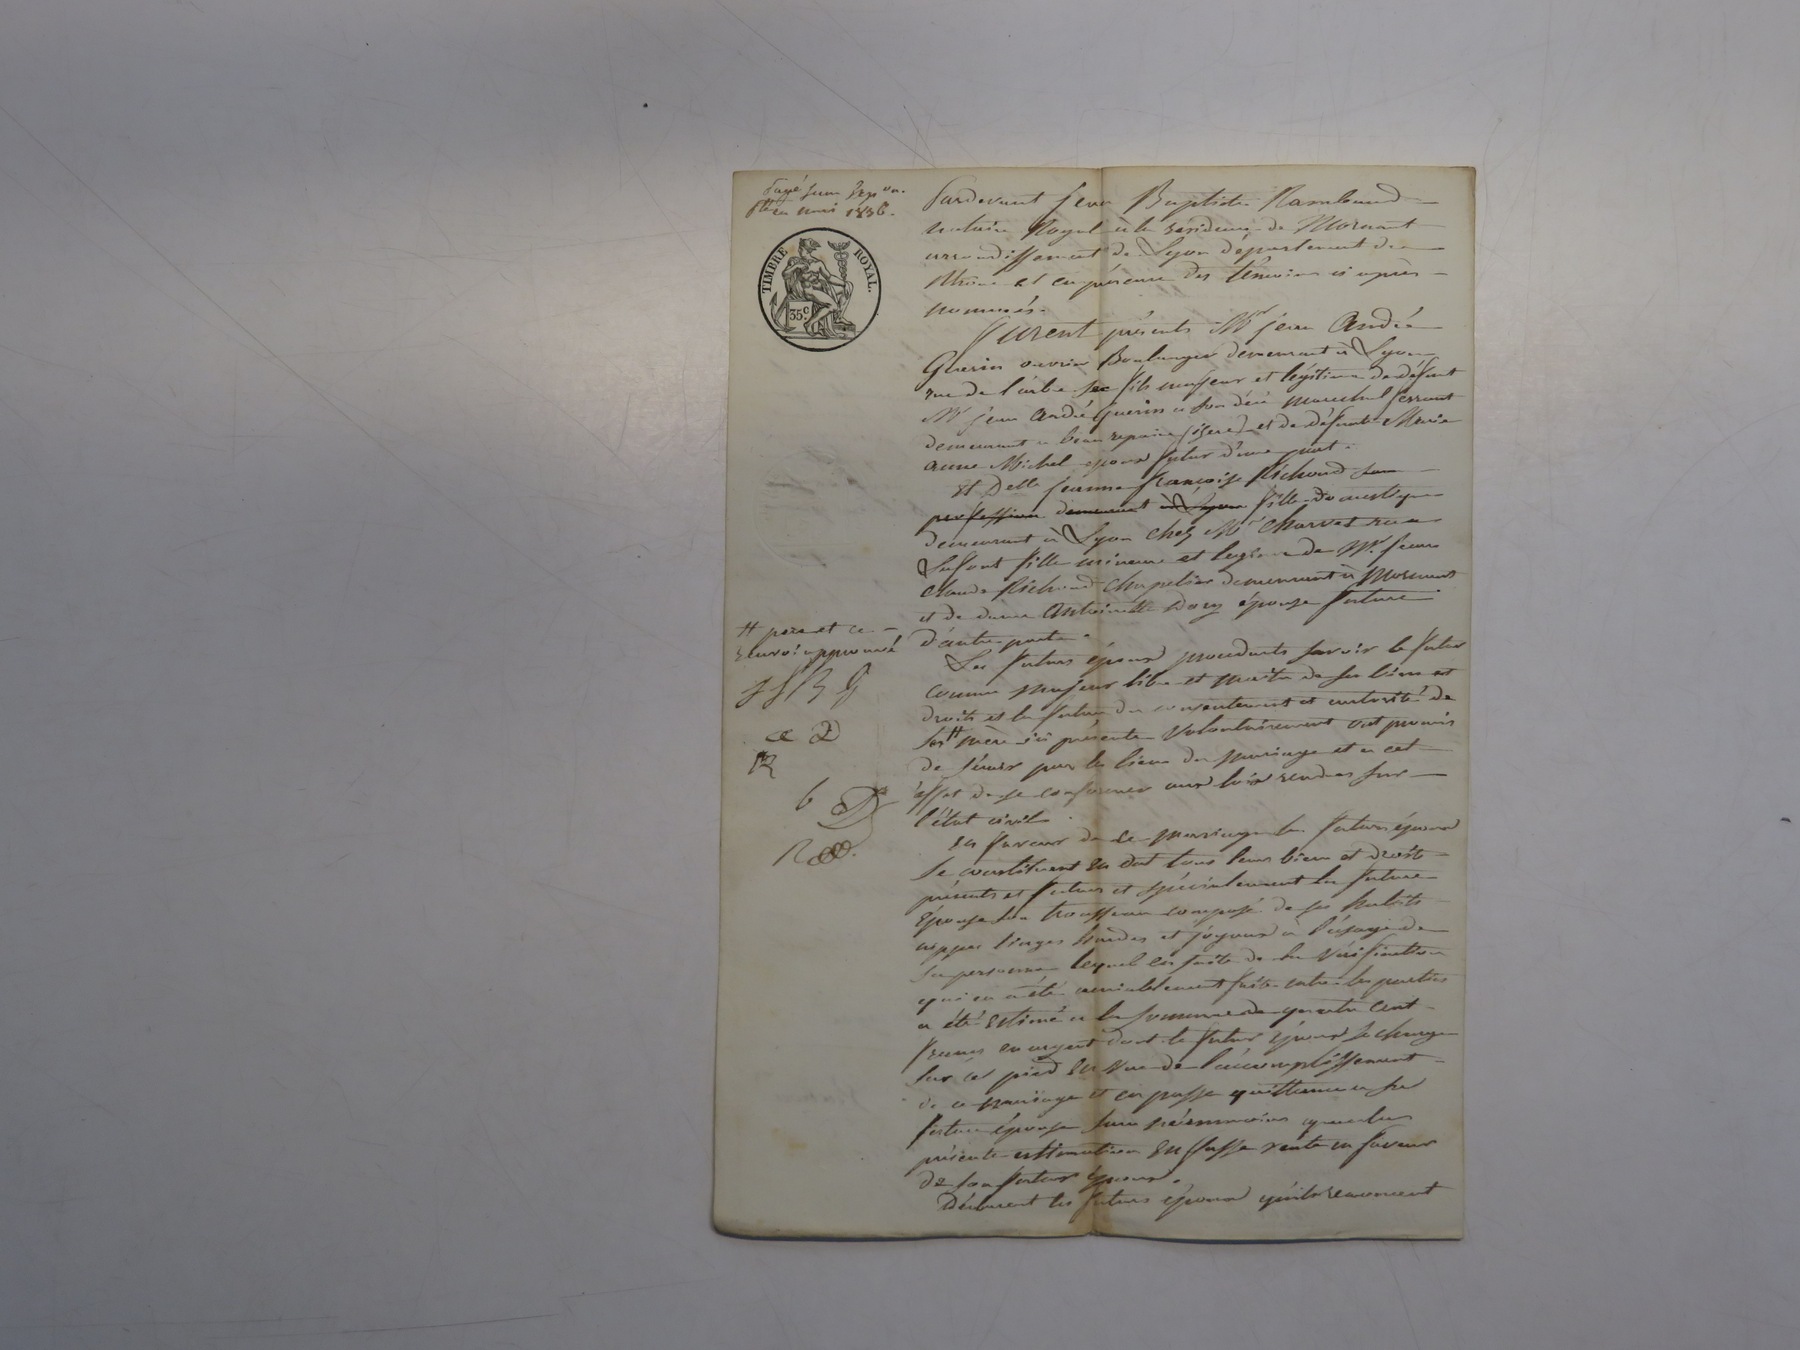 payé
mai 1836.
TIMBRE ROYAL.
35 c.
Pardevant Jean Baptiste Rambaud
notaire Royal à la résidence de Mornant
arrondissement de Lyon département du
Rhône et en présence des témoins ci après
nommés.
Furent présents Mr jean André
Guerin ouvrier Boulanger demeurant à Lyon
rue de l'arbre sec fils majeur et légitime de défunt
Mr jean André Guerin à son décé marechal ferrant
demeurant à beaurepaire (isere) et de défunte Marie
anne Michel époux futur d'une part.
Et Delle jeanne françoise Richoud san
profession demeurant à Lyon fille domestique
demeurant à Lyon chez Mr Charvet rue
Lafont fille mineure et legitime de Mr. jean
claude Richoud Chapelier demeurant à Mornant
et de dame Antoinette épouse future
d'autre part.
Les futurs époux procedants savoir le futur
comme majeur libre et maitre de ses biens et
droits et la future du consentement et autorité de
ses # mère ici présents volontairement ont promis
de s'unir par les liens du mariage et à cet
effet de se conformer aux lois rendues sur
l'état civil.
# pere et ce
renvoi approuvé
J J R G
a D
R
b D
En faveur de ce mariage les futurs époux
se constituent en dot tous leurs biens et droits
présents et futurs et spécialement la future
épouse son trousseau composé de ses habits
nippes linges hardes et joyaux à l'usage de
sa personne, lequel en suite de la vérification
qui en a été amiablement faite entre les parties
a été estimé à la somme de quatre cent
francs en argent dont le futur époux se charge
sur ce pied en vue de l'accomplissement
de ce mariage et en passe quittance à sa
future épouse sans néanmoins que la
présente estimation en fasse vente en faveur
de son futur époux.
Déclarent les futurs époux qu'ils renoncent